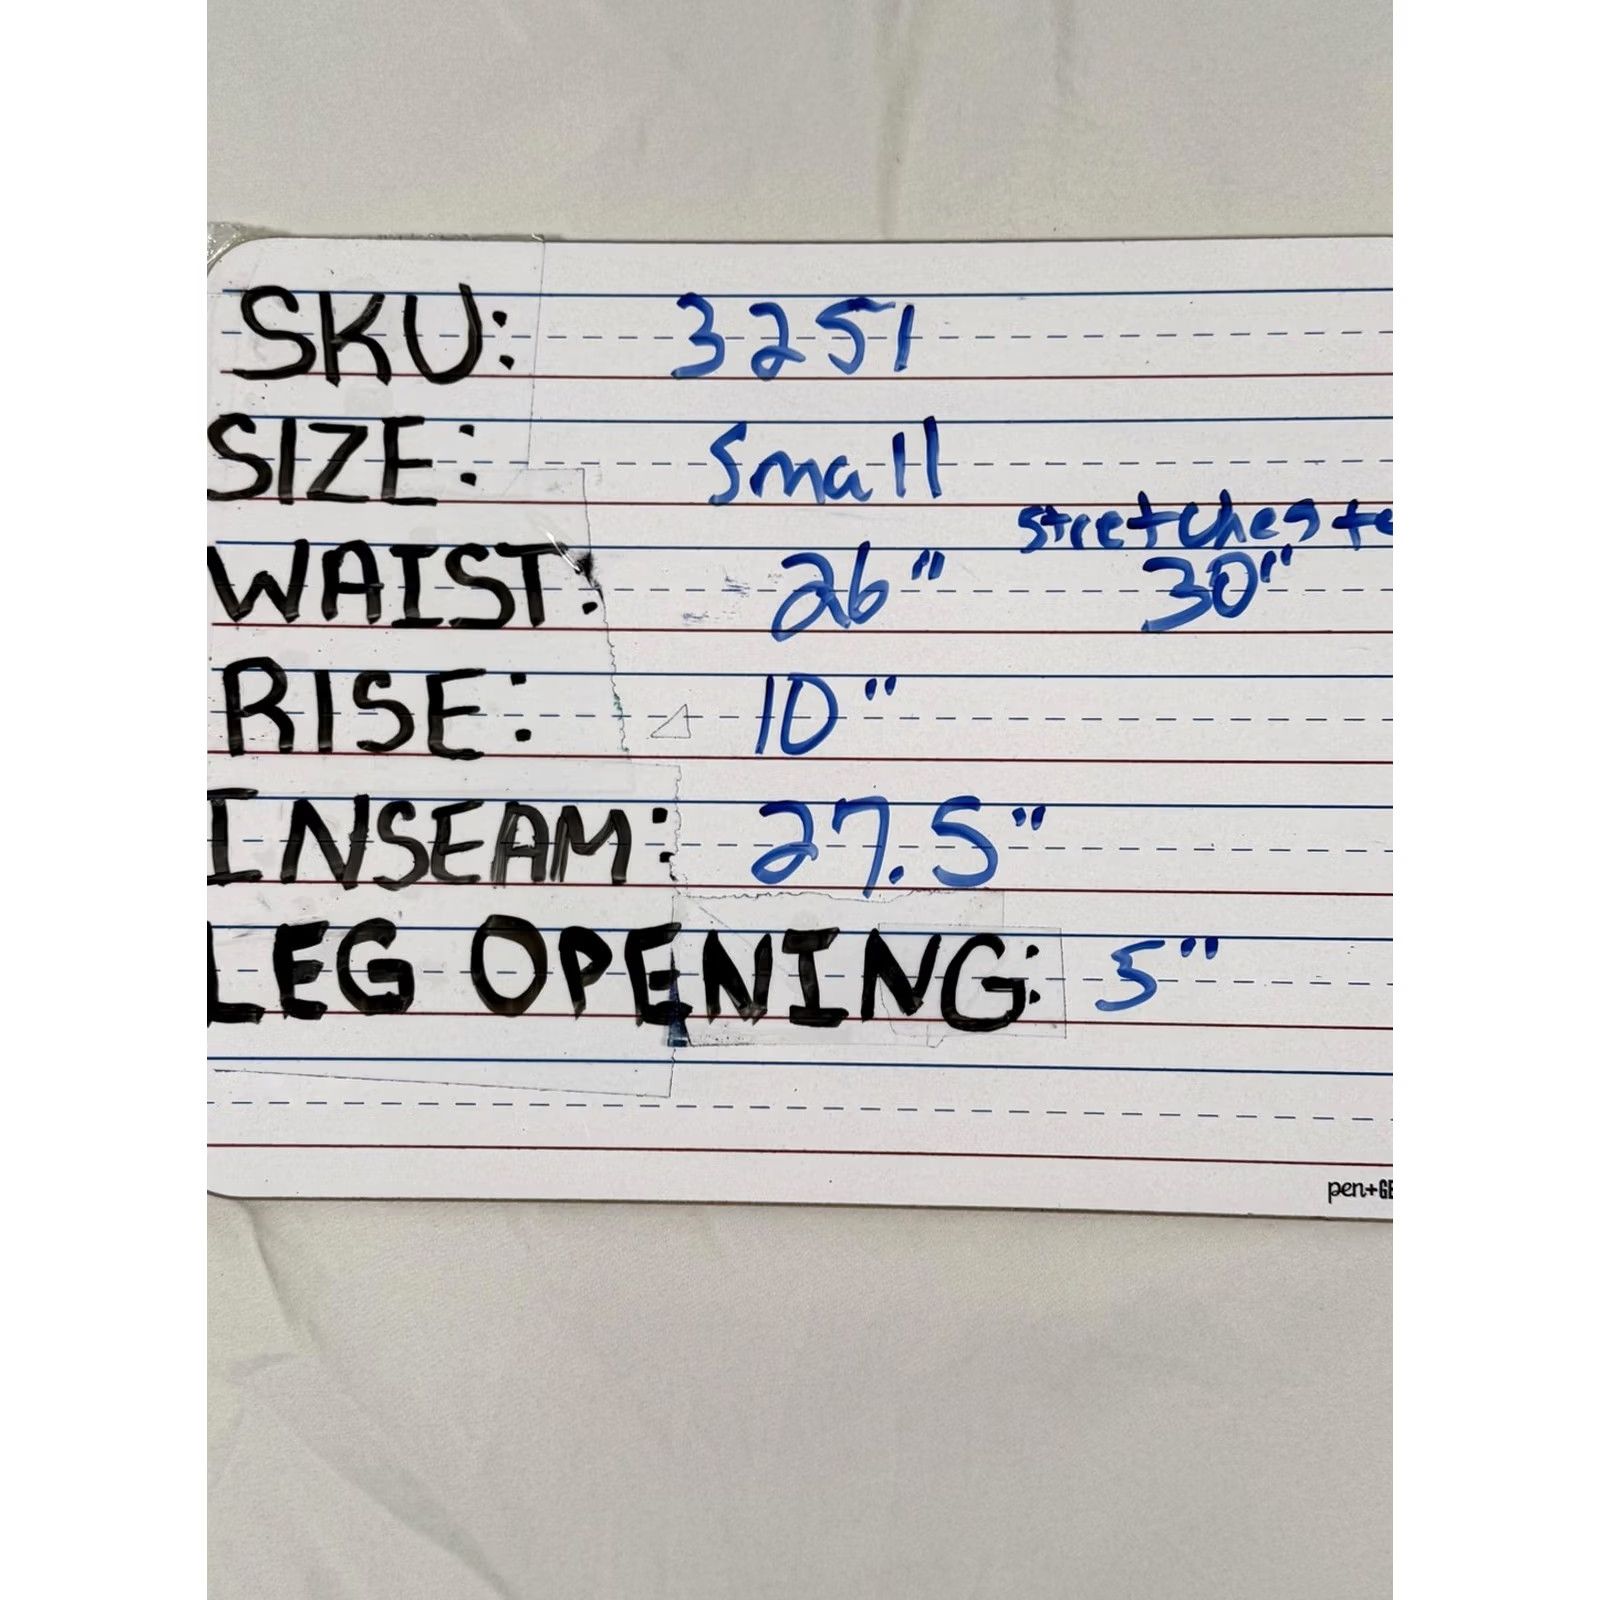 SKU: 3251
SIZE: Small
stretches to
WAIST: 26" 30"
RISE: 10"
INSEAM: 27.5"
LEG OPENING: 5"
pen+GE